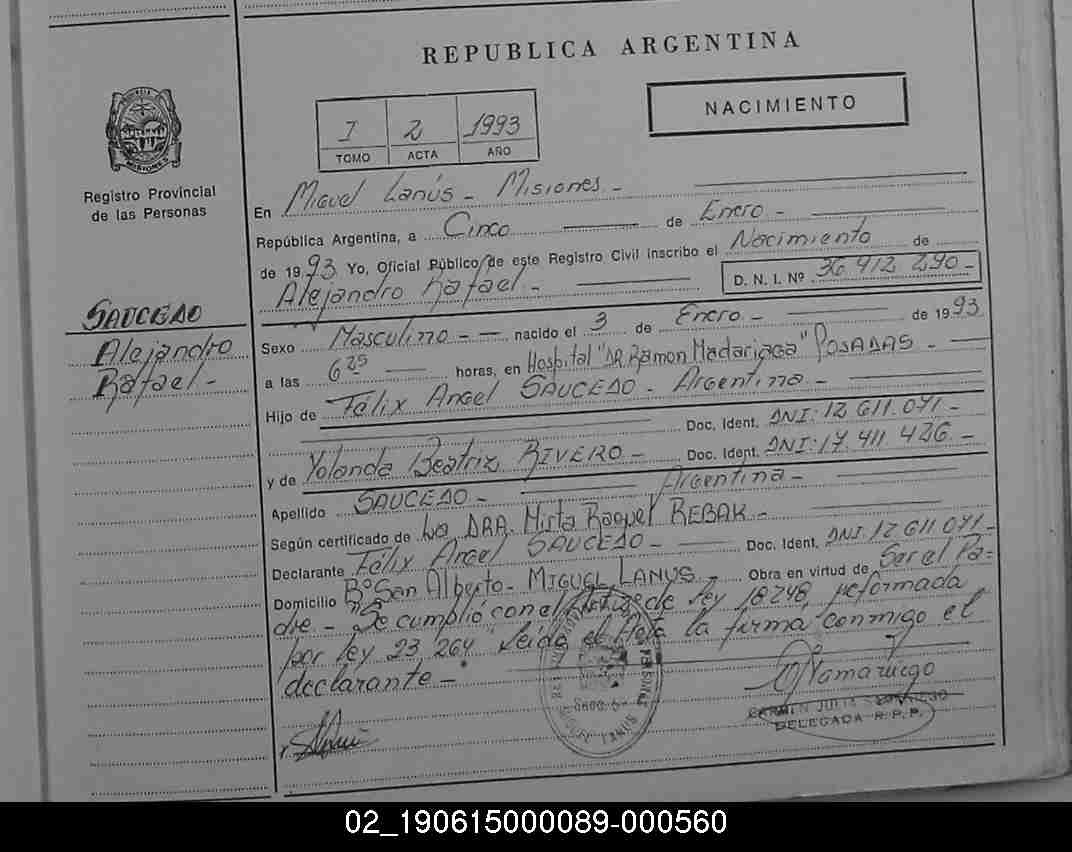 REPUBLICA ARGENTINA
NACIMIENTO
I 2 1993
TOMO ACTA AÑO
PROVINCIA
MISIONES
Registro Provincial
de las Personas
SAUCEDO
Alejandro
Rafael -
En Miguel Lanús - Misiones -
República Argentina, a Cinco de Enero -
de 1993 Yo, Oficial Público de este Registro Civil inscribo el Nacimiento de
Alejandro Rafael - D. N. I. Nº 36 912 290 -
Sexo Masculino - - nacido el 3 de Enero - de 1993
a las 6 25 horas, en Hospital "DR. Ramon Madariaga" POSADAS -
Hijo de Félix Angel SAUCEDO - Argentina -
Doc. Ident. DNI: 12 611.071 -
y de Yolanda Beatriz RIVERO - Doc. Ident. DNI: 17.411 426 -
Argentina -
Apellido SAUCEDO -
Según certificado de La DRA. Mirta Raquel REBAK -
Declarante Félix Angel SAUCEDO - Doc. Ident. DNI. 12 611 071 -
Domicilio Bº San Alberto - MIGUEL LANUS - Obra en virtud de Ser el Pa=
dre - Se cumplió con el de ley 18248, reformada
por ley 23 264 Leída el Acta la firma conmigo el
declarante -
CARMEN JULIA
DELEGADA R.P.P.
02_190615000089-000560